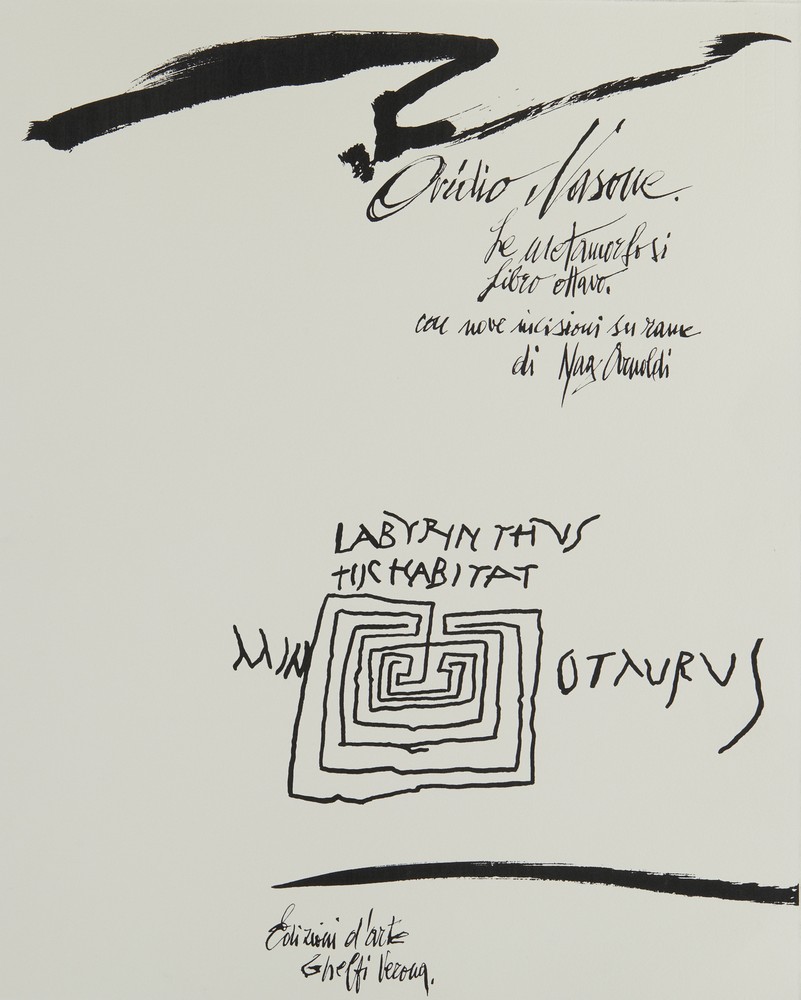 Ovidio Nasone.
Le metamorfosi
libro ottavo.
con nove incisioni su rame
di Nag Arnoldi
LABYRINTHUS
HIC HABITAT
MINOTAURUS
Edizioni d'arte
Ghelfi Verona.